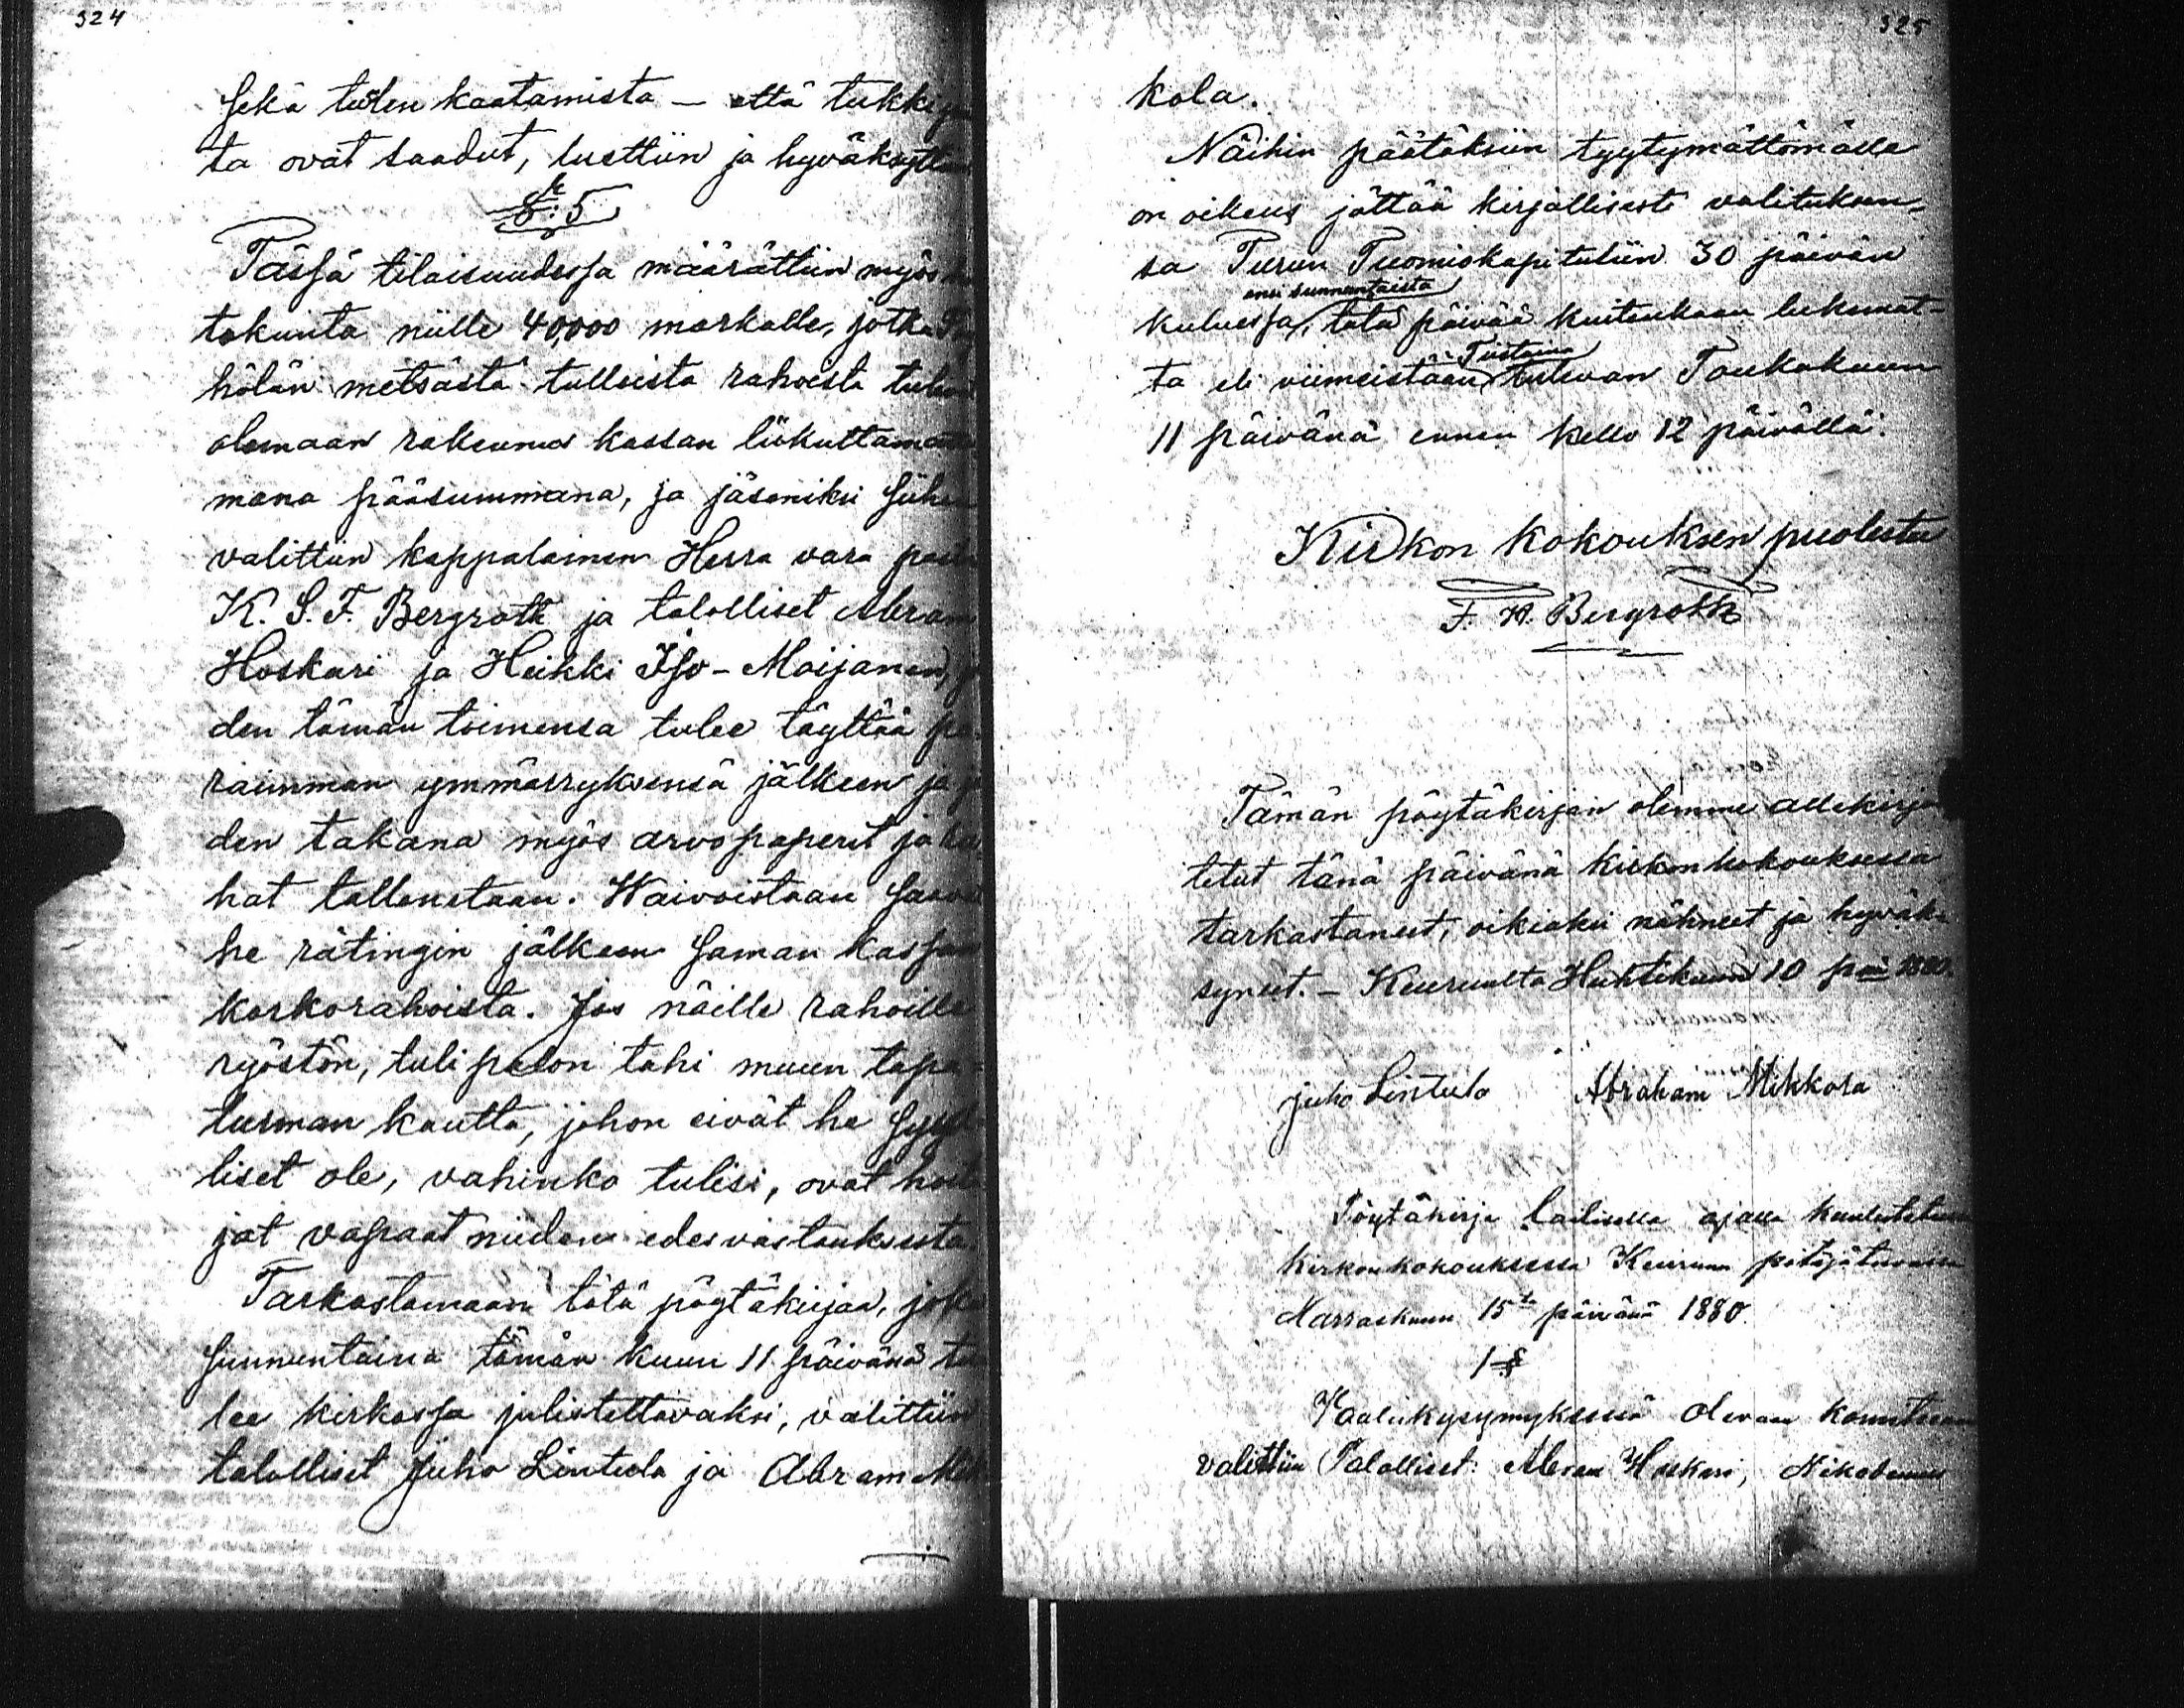 324
sekä tuten kaatamista - että tukki
ta ovat saadut, luettiin ja hyväksyttiin
§: 5
Tässä tilaisuudessa määrättiin myös
tokunta niille 40,000 markalle, jotka
hölän metsästä tulleista rahoista tulee
olemaan rakennus kassan liikuttamatto
mana pääsummana, ja jäseniksi siihe
valittiin kappalainen Herra vara pas
K. S. F. Bergroth ja talolliset Abram
Hoskari ja Heikki Iso-Maijanen,
den tämän toimensa tulee täyttää pa
raimman ymmärryksensä jälkeen ja
den takana myös arvopaperit ja
hat talletetaan. Waivoistaan saavat
he rätingin jälkeen saman kassan
korkorahoista. Jos näille rahoille
ryöstön, tulipalon tahi muun tapa-
turman kautta, johon eivät he syyl
liset ole, vahinko tulisi, ovat hoit
jat vapaat niiden edesvastauksesta.
Tarkastamaan tätä pöytäkirjaa, joka
sunnuntaina tämän kuun 11 päivänä tu
lee kirkossa julistettavaksi, valittiin
talolliset Juho Lintula ja Abram Mik
325
kola.
Näihin päätöksiin tyytymättömälle
on oikeus jättää kirjallisesti valituksen-
sa Turun Tuomiokapituliin 30 päivän
ensi sunnuntaista
kuluessa, tätä päivää kuitenkaan lukemat-
Tiistaina
ta eli viimeistään tulevan Toukokuun
11 päivänä ennen kello 12 päivällä.
Kirkon kokouksen puolesta
F. H. Bergroth
Tämän pöytäkirjan olemme allekirjoi
tetut tänä päivänä kirkonkokouksessa
tarkastaneet, oikiaksi nähneet ja hyväk-
syneet. - Keuruulta Huhtikuun 10 p:nä 1880.
Juho Lintula Abraham Mikkola
Pöytäkirja laillisella ajalla kuulutetussa
kirkonkokouksessa Keuruun pitäjätuvassa
Marraskuun 15ta päivänä 1880.
1 §
Vaalikysymyksessä olevaan komiteaan
valittiin Talolliset: Abram Hoskari, Nikodemus